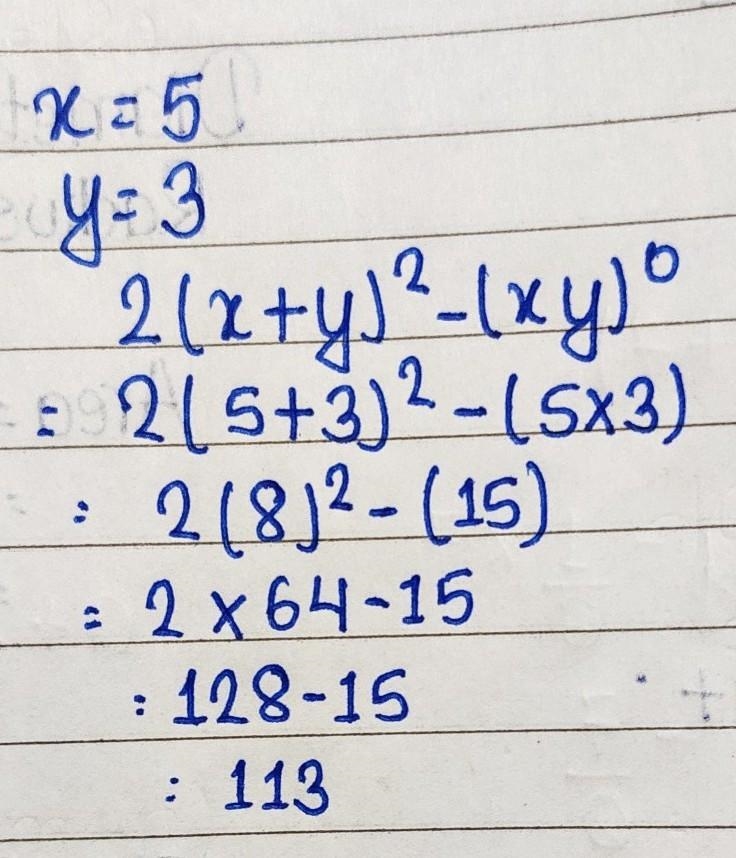 x = 5
y = 3
2(x+y)² - (xy)⁰
= 2(5+3)² - (5×3)
= 2(8)² - (15)
= 2 × 64 - 15
= 128 - 15
= 113